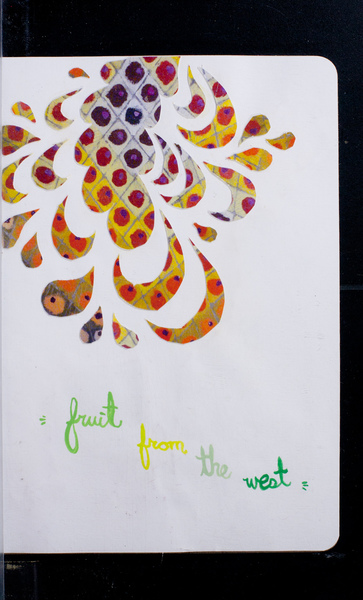 fruit from the west